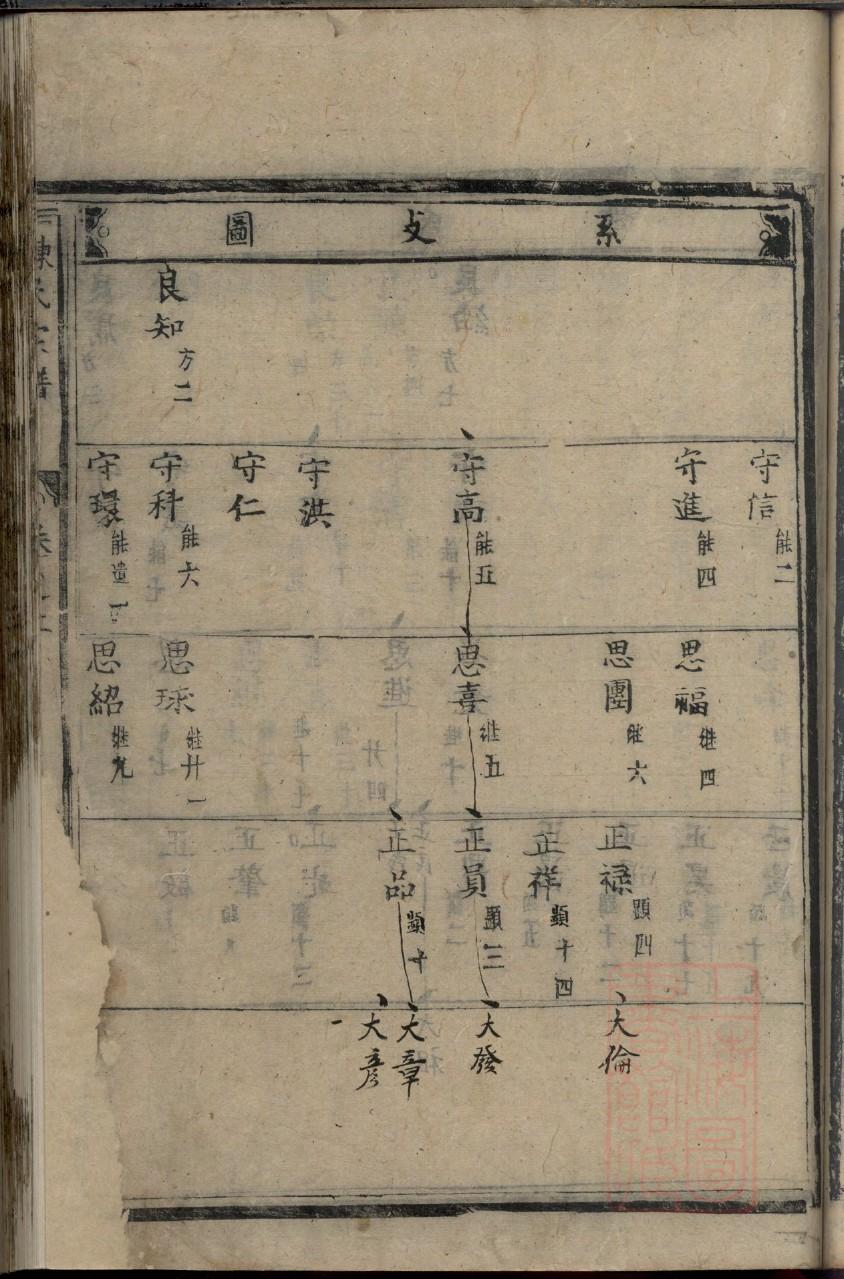 系支圖
良知 方二
守信 能二
守進 能四
守高 能五
守洪
守仁
守科 能六
守環 能遺一
思福 継四
思團 継六
思喜 継五
思球 継廿一
思紹 継九
正祿 顯四
正祥 顯十四
正員 顯三
正品 顯十
大倫
大發
大章
大彥
陳氏宗譜